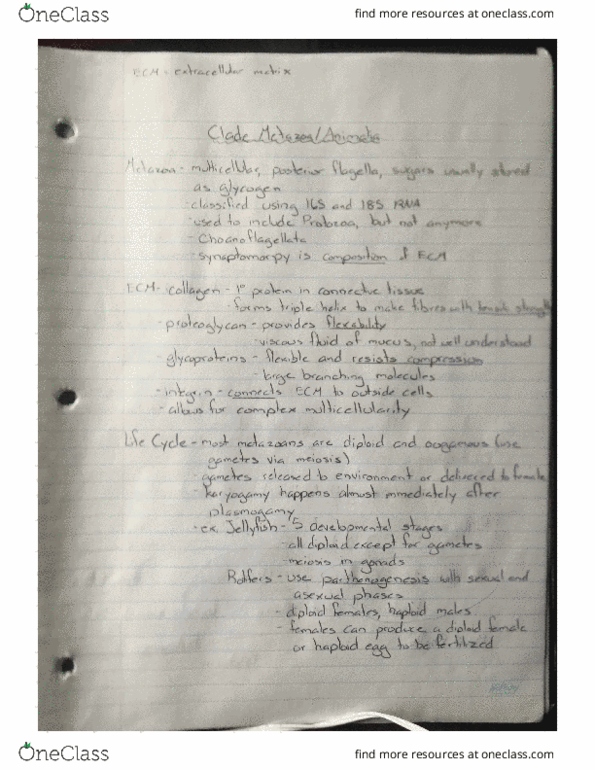 OneClass
find more resources at oneclass.com
ECM - extracellular matrix
Clade Metazoa/Animalia
Metazoa - multicellular, posterior flagella, sugars usually stored
as glycogen
- classified using 16S and 18S rRNA
- used to include Protozoa, but not anymore
- Choanoflagellata
- synaptomorpy is composition of ECM
ECM - collagen - 1° protein in connective tissue
- forms triple helix to make fibres with tensile strength
- proteoglycan - provides flexability
- viscous fluid of mucus, not well understood
glycoproteins - flexible and resists compression
- large branching molecules
- integrin - connects ECM to outside cells
- allows for complex multicellularity
Life Cycle - most metazoans are diploid and oogamous (
gametes via meiosis)
- gametes released to environment or delivered to female
- Karyogamy happens almost immediately after
plasmogamy
- ex. Jellyfish - 5 developmental stages
- all diploid except for gametes
- meiosis in gonads
Rotifers - use parthenogenesis with sexual and
asexual phases
- diploid females, haploid males
- females can produce a diploid female
or haploid egg to be fertilized
OneClass
find more resources at oneclass.com